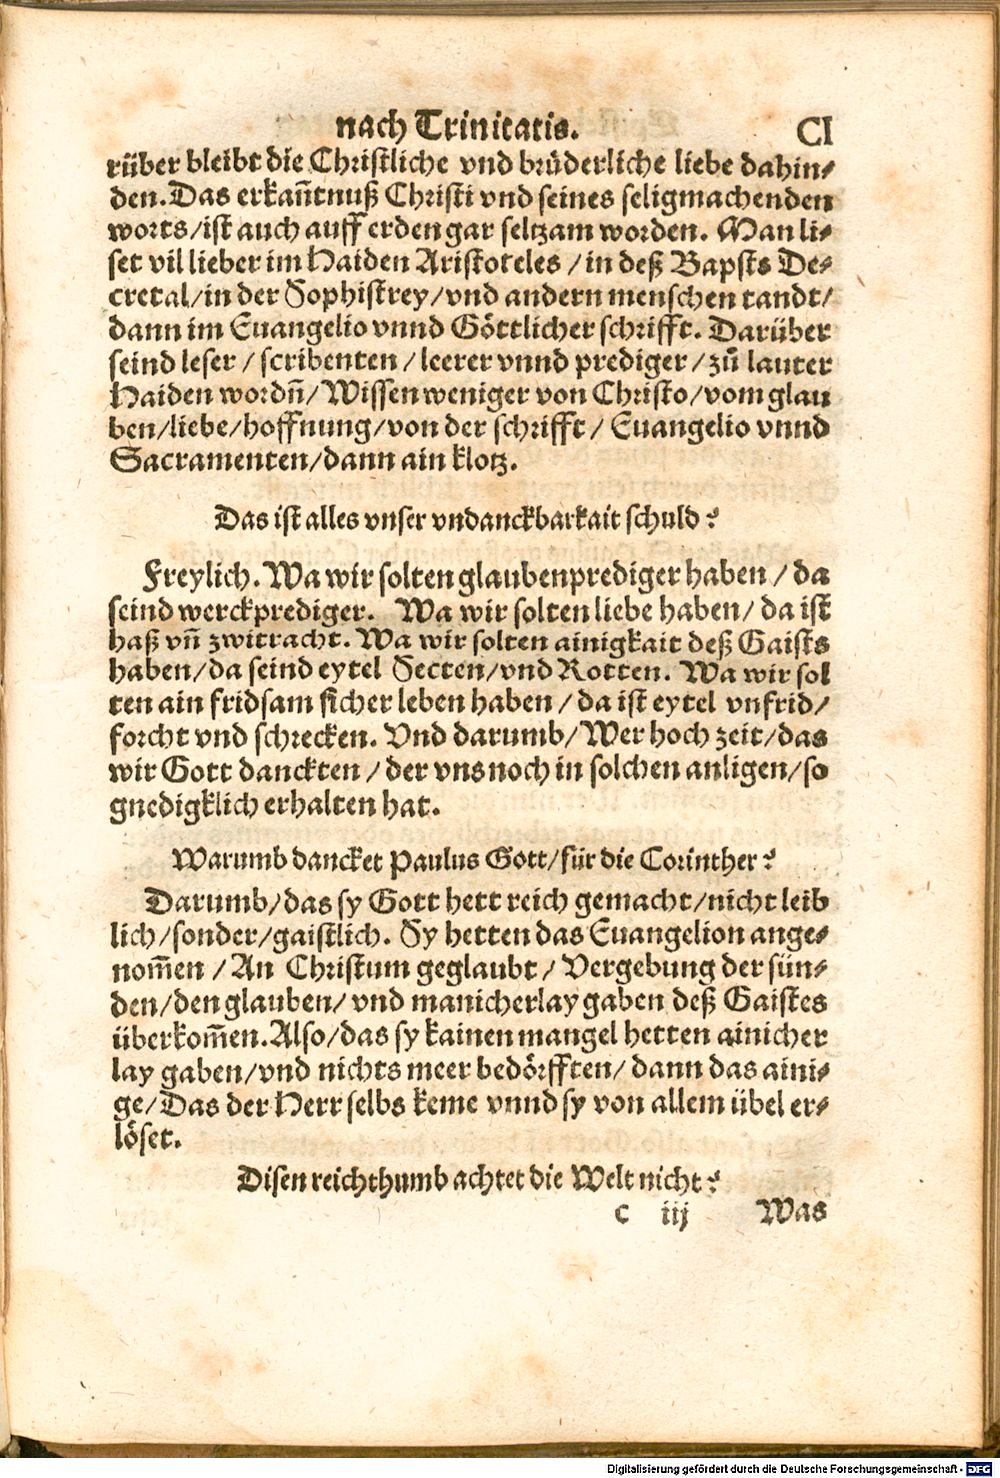 nach Trinitatis. CI
rüber bleibt die Christliche vnd brüderliche liebe dahin⸗
den. Das erkañtnuß Christi vnd seines seligmachenden
worts/ist auch auff erden gar seltzam worden. Man li⸗
set vil lieber im Haiden Aristoteles/in deß Bapsts De⸗
cretal/in der Sophistrey/vnd andern menschen tandt/
dann im Euangelio vnnd Göttlicher schrifft. Darüber
seind leser/scribenten/leerer vnnd prediger/zů lauter
Haiden wordñ/Wissen weniger von Christo/vom glau
ben/liebe/hoffnung/von der schrifft/Euangelio vnnd
Sacramenten/dann ain klotz.
Das ist alles vnser vndanckbarkait schuld?
Freylich. Wa wir solten glaubenprediger haben/da
seind werckprediger. Wa wir solten liebe haben/da ist
haß vñ zwitracht. Wa wir solten ainigkait deß Gaists
haben/da seind eytel Secten/vnd Rotten. Wa wir sol
ten ain fridsam sicher leben haben/da ist eytel vnfrid/
forcht vnd schrecken. Vnd darumb/Wer hoch zeit/das
wir Gott danckten/der vns noch in solchen anligen/so
gnedigklich erhalten hat.
Warumb dancket Paulus Gott/für die Corinther?
Darumb/das sy Gott hett reich gemacht/nicht leib
lich/sonder/gaistlich. Sy hetten das Euangelion ange⸗
nom̃en/An Christum geglaubt/Vergebung der sün⸗
den/den glauben/vnd manicherlay gaben deß Gaistes
überkom̃en. Also/das sy kainen mangel hetten ainicher
lay gaben/vnd nichts meer bedörfften/dann das aini⸗
ge/Das der Herr selbs keme vnnd sy von allem übel er⸗
löset.
Disen reichthumb achtet die Welt nicht?
c iij Was
Digitalisierung gefördert durch die Deutsche Forschungsgemeinschaft - DFG